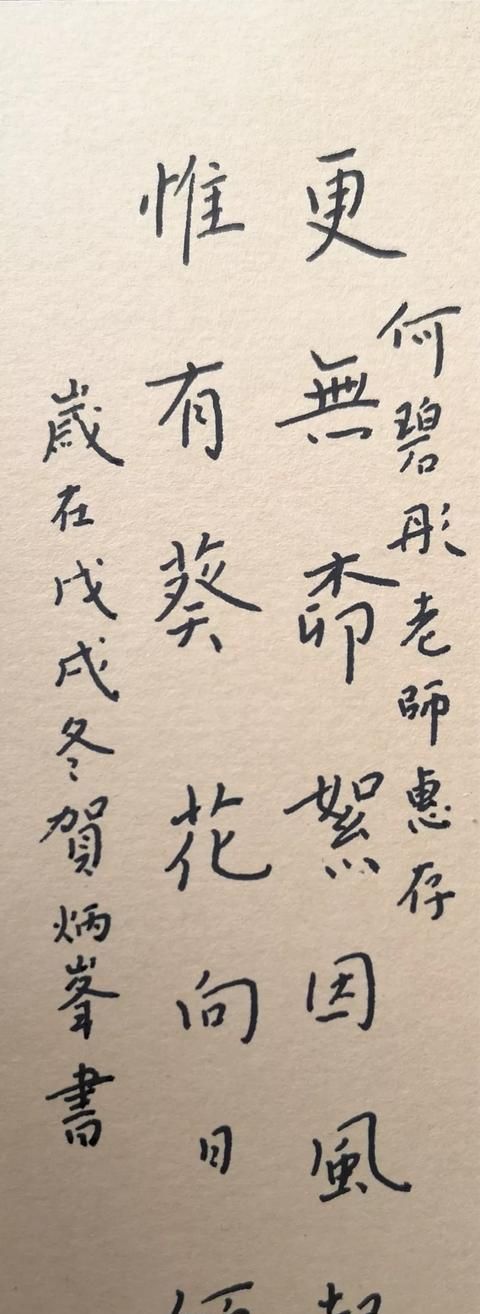 何碧彤老師惠存
更無柳絮因風
惟有葵花向日
歲在戊戌冬賀炳峯書